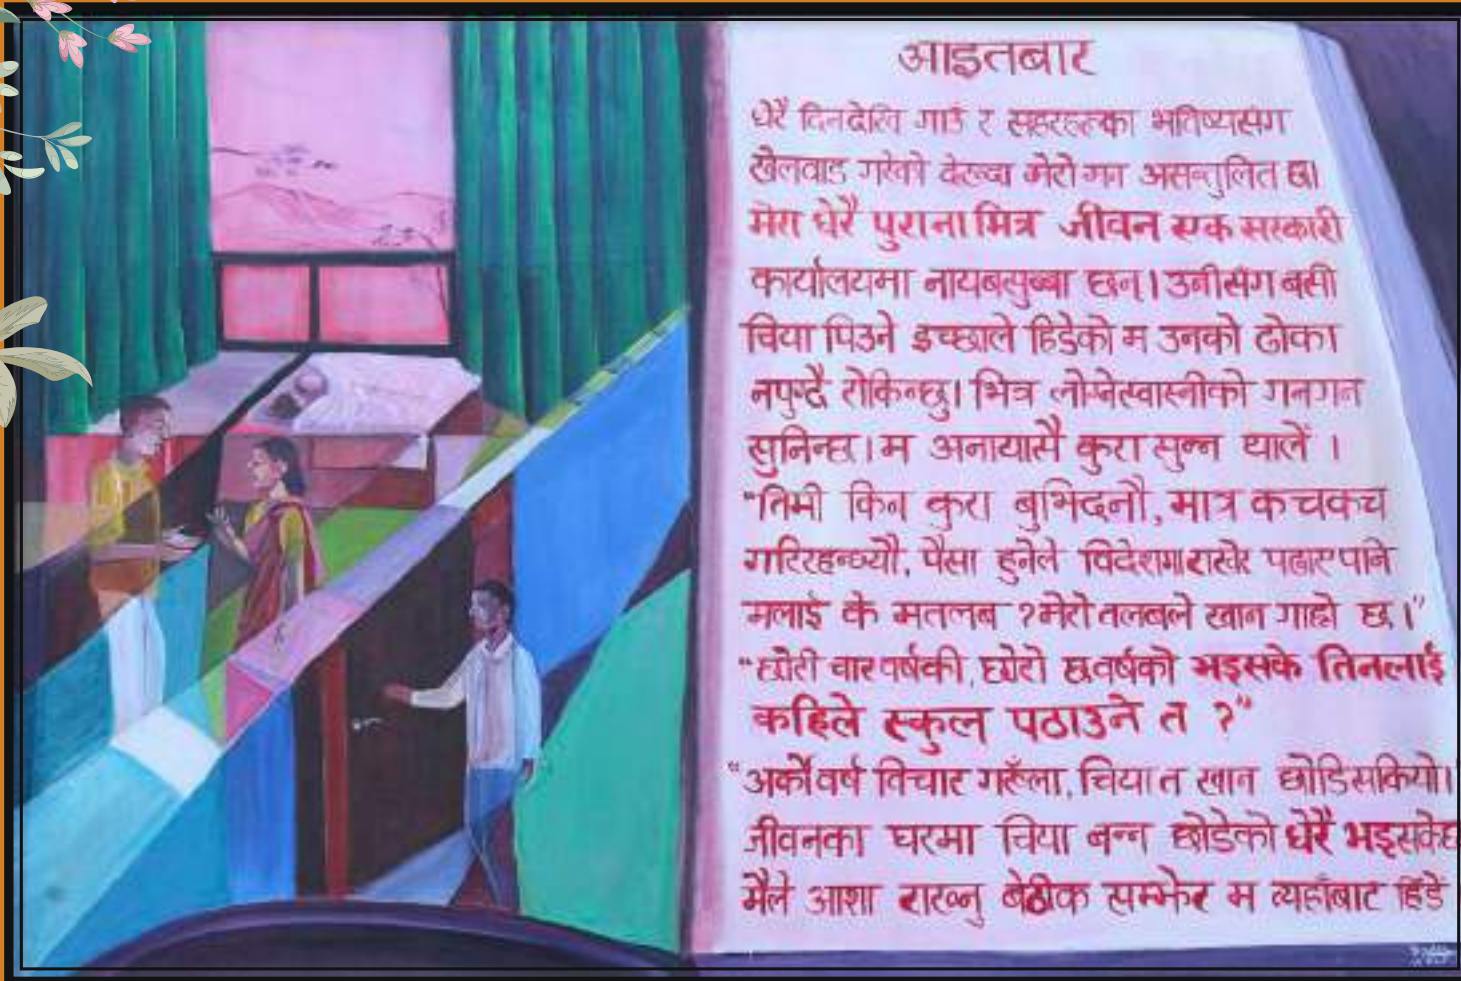 आइतबार
धेरै दिनदेखि गाउँ र सहरहरूका भविष्यसंग
खेलवाड गरेको देख्दा मेरो मन असन्तुलित छ।
मेरा धेरै पुराना मित्र जीवन एक सरकारी
कार्यालयमा नायबसुब्बा छन्। उनीसंग बसी
चिया पिउने इच्छाले हिडेको म उनको ढोका
नपुग्दै रोकिन्छु। भित्र लोग्नेस्वास्नीको गनगन
सुनिन्छ। म अनायासै कुरा सुन्न थालें ।
"तिमी किन कुरा बुझिदनौ, मात्र कचकच
गरिरहन्छ्यौ, पैसा हुनेले विदेशमा राखेर पढाए पनि
मलाई के मतलब ? मेरो तलबले खान गाह्रो छ।"
"छोरी चार वर्षकी, छोरो छ वर्षको भइसके तिनलाई
कहिले स्कुल पठाउने त ?"
"अर्को वर्ष विचार गरूँला, चिया त खान छोडिसकियो।
जीवनका घरमा चिया बन्न छोडेको धेरै भइसकेछ
मैले आशा राख्नु बेठीक सम्झेर म त्यहाँबाट हिडें